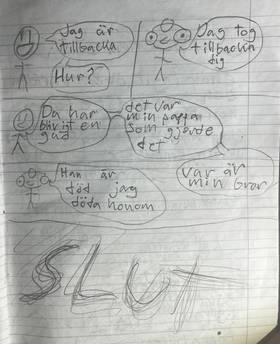 Jag är
tillbacka
Hur?
Jag tog
tillbacka
dig
Du har
blivit en
gud
det var
min pappa
som gjorde
det
var är
min bror
Han är
död jag
döda honom
SLUT